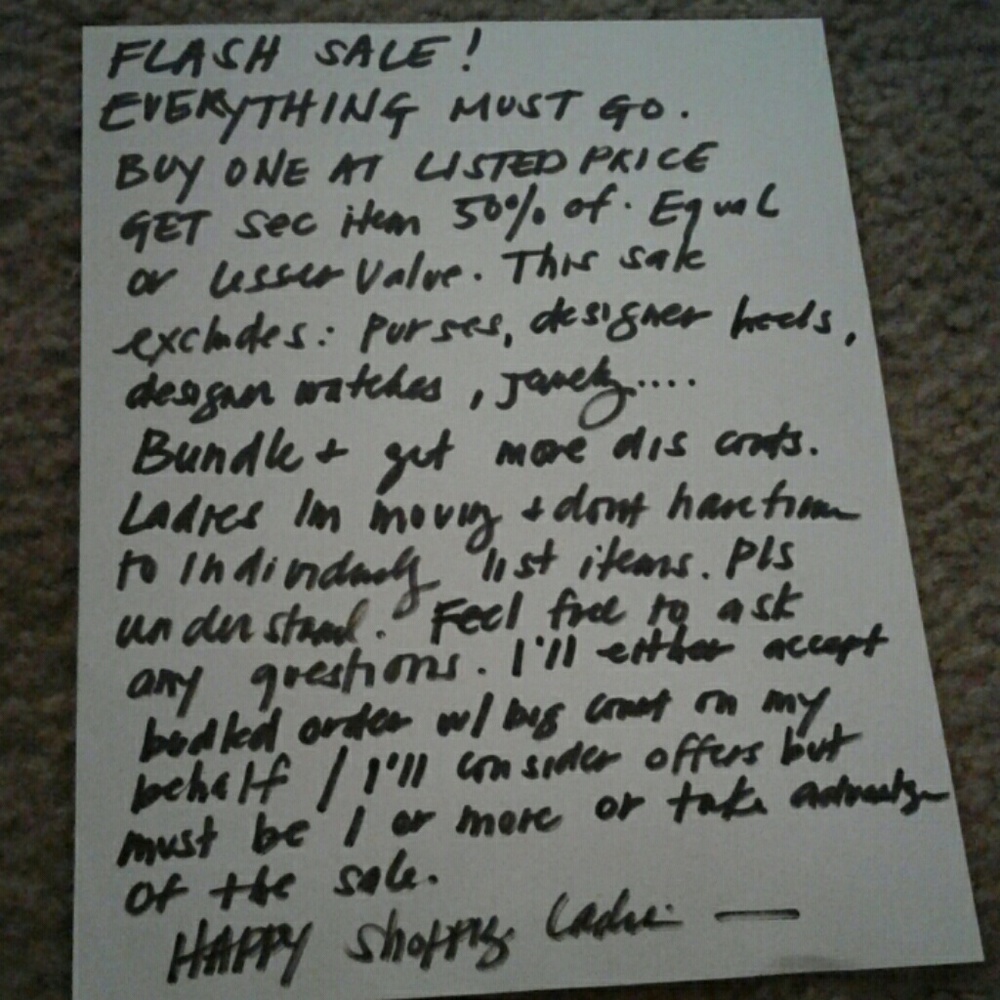 FLASH SALE!
EVERYTHING MUST GO.
BUY ONE AT LISTED PRICE
GET Sec item 50% of. Equal
or lesser Value. This sale
excludes: Purses, designer heels,
designer watches, jewelry....
Bundle + get more dis conts.
Ladies Im moving + dont have time
to individually list items. Pls
understand. Feel free to ask
any questions. I'll either accept
order w/ big on my
behalf / I'll consider offers but
must be 1 or more or take advantage
of the sale.
HAPPY Shopping Ladies —